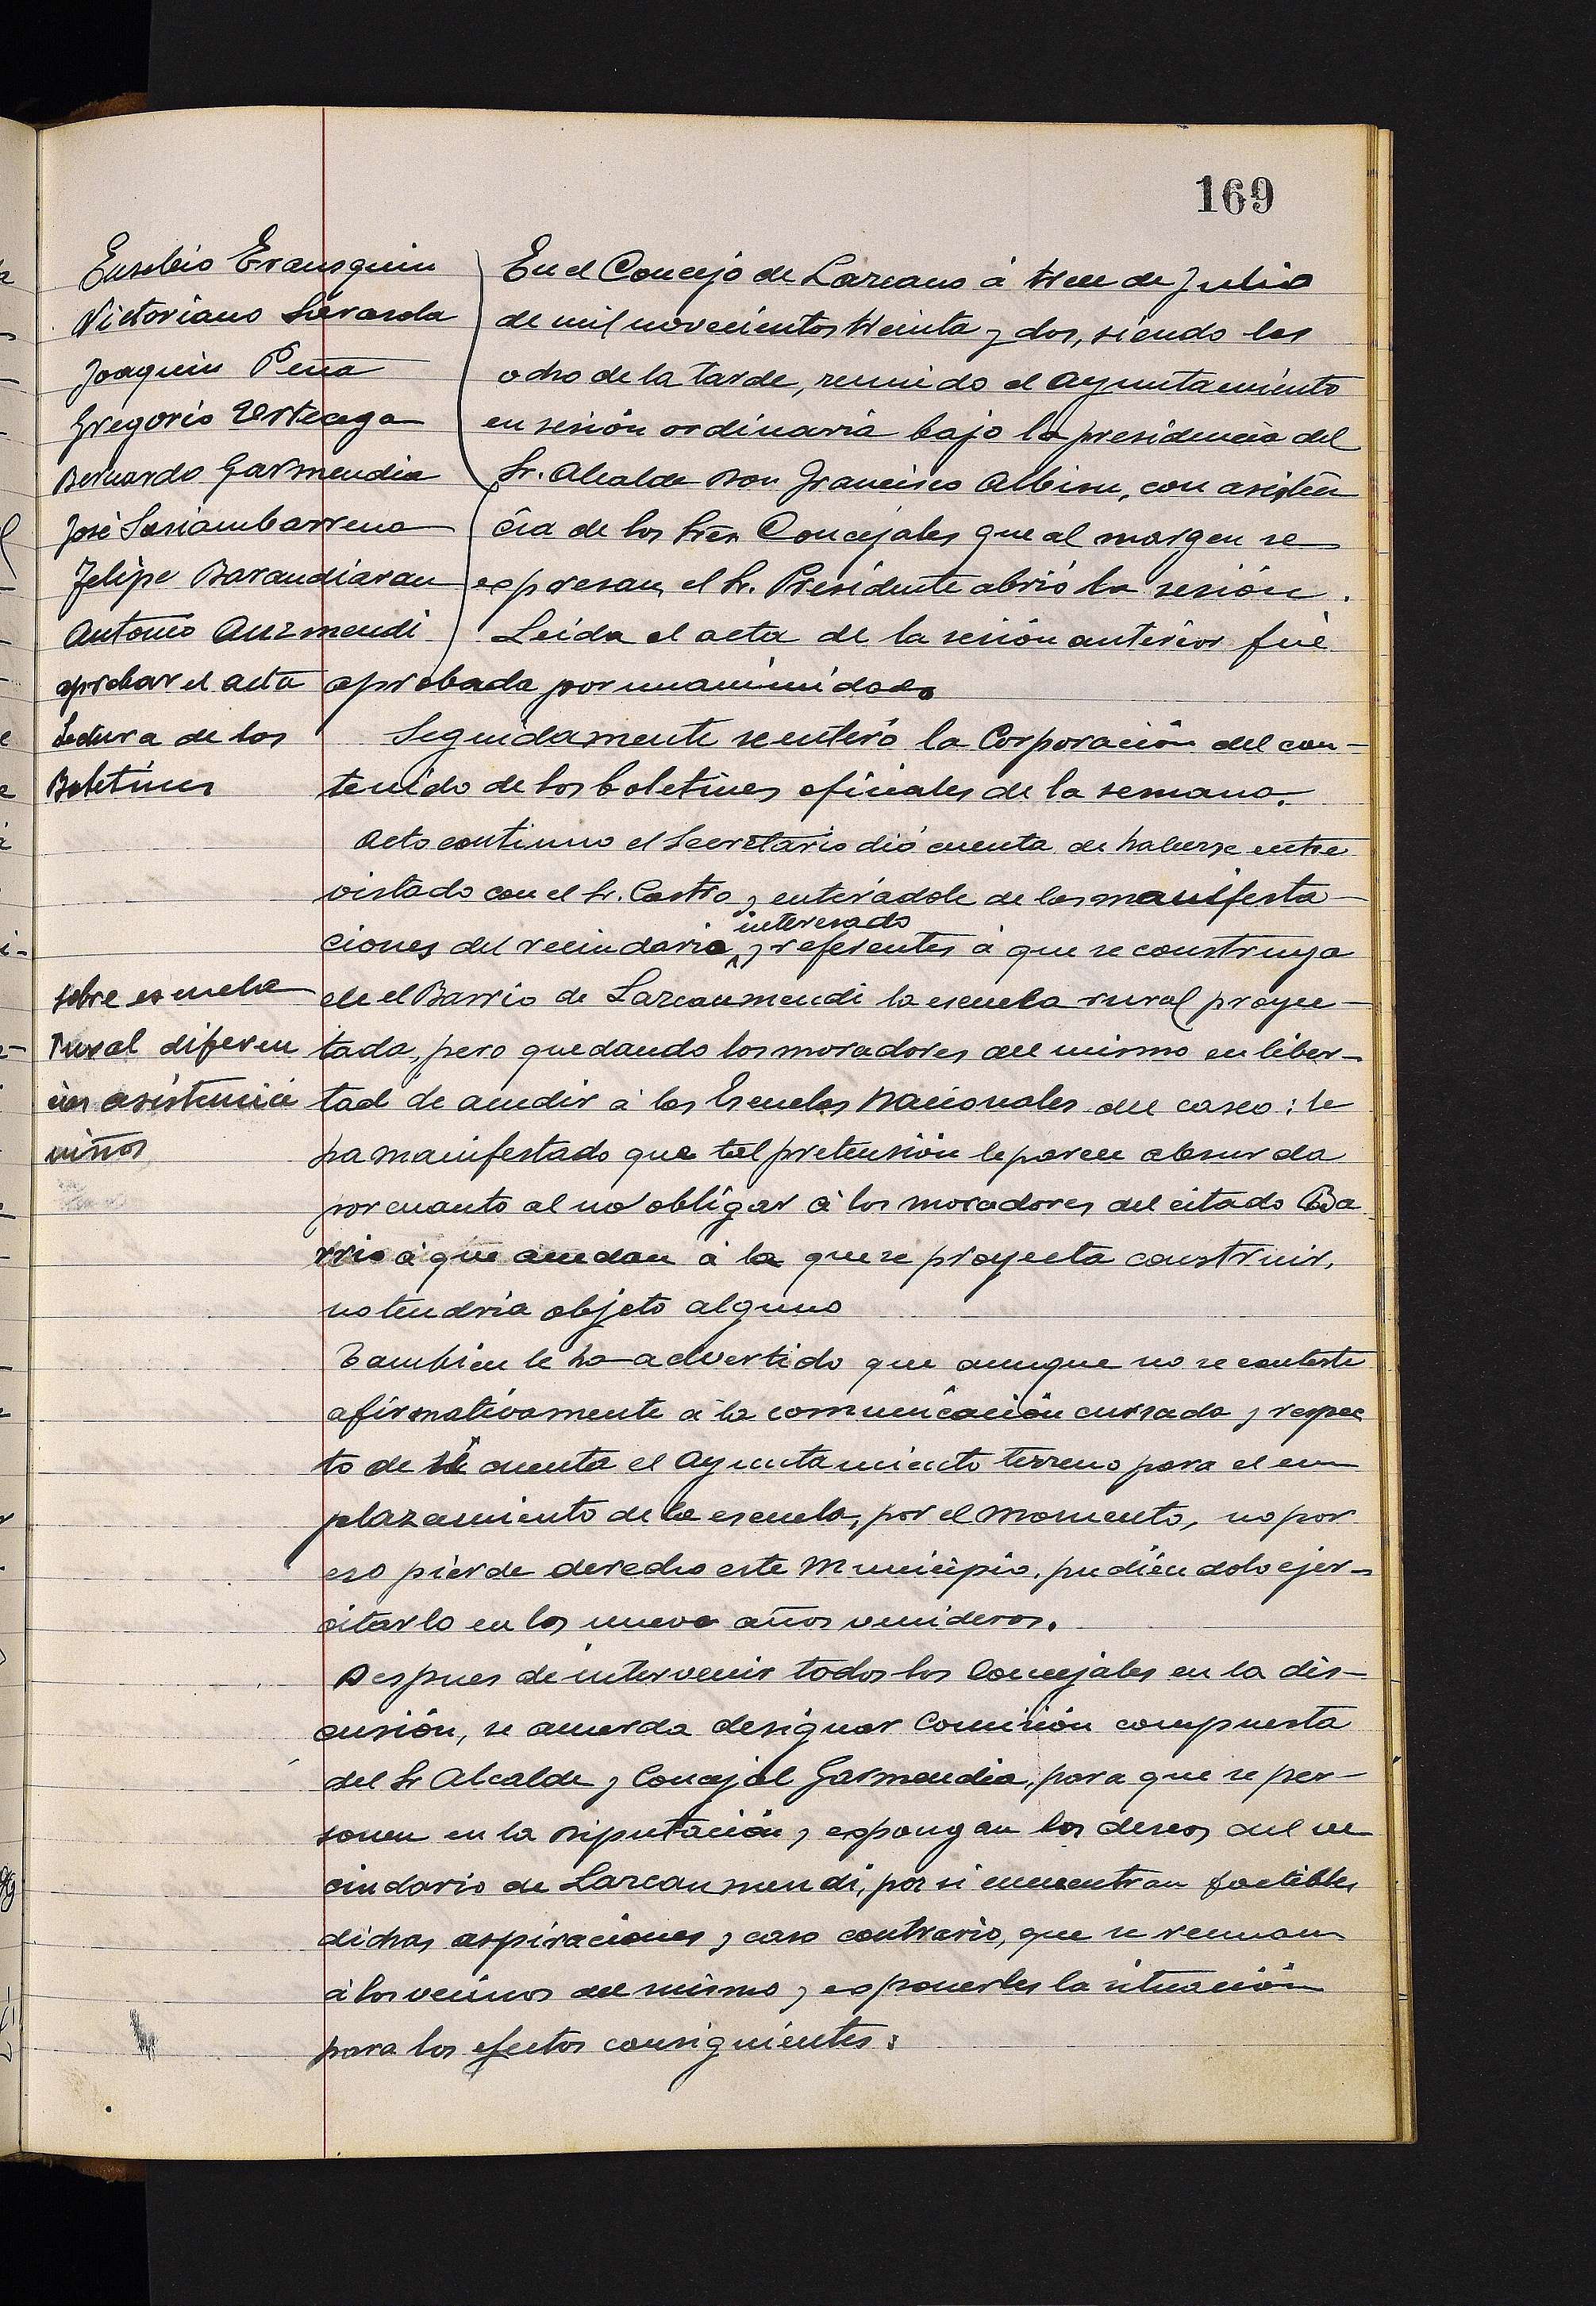 169
Eusebio Eransquin
Victoriano Sarasola
Joaquin Peña
Gregorio Urteaga
Bernardo Garmendia
José Sasiambarrena
Felipe Barandiaran
Antonio Auzmendi
En el Concejo de Lazcano á trece de Julio
de mil novecientos treinta y dos, siendo las
ocho de la tarde, reunido el Ayuntamiento
en sesión ordinaria bajo la presidencia del
Sr. Alcalde Don Francisco Albisu, con asisten
cia de los Sres. Concejales que al margen se
expresan, el Sr. Presidente abrió la sesión.
aprobar el acta
Leida el acta de la sesión anterior fué
aprobada por unanimidad.
Lectura de los
Boletines
Seguidamente se enteró la Corporación del con-
tenido de los boletines oficiales de la semana.
sobre escuela
rural diferen
cias asistencia
niños
Acto continuo el Secretario dió cuenta de haberse entre
vistado con el Sr. Castro y enterádole de las manifesta-
ciones del vecindario interesado y referentes á que se construya
en el Barrio de Lazcaumendi la escuela rural proyec-
tada, pero quedando los moradores del mismo en liber-
tad de acudir á las Escuelas Nacionales del casco: le
ha manifestado que tal pretensión le parece absurda
por cuanto al no obligar á los moradores del citado Ba
rrio á que acudan á la que se proyecta construir,
no tendria objeto alguno
Tambien le ha advertido que aunque no se conteste
afirmativamente á la comunicación cursada y respec
to de si cuenta el Ayuntamiento terreno para el em
plazamiento de la escuela, por el momento, no por
eso pierde derecho este Municipio, pudiéndolo ejer-
citarlo en los nueve años venideros.
Despues de intervenir todos los Concejales en la dis-
cusión, se acuerda designar Comisión compuesta
del Sr Alcalde y Concejal Garmendia, para que se per-
sonen en la Diputación y expongan los deseos del ve
cindario de Lazcaumendi, por si encuentran factibles
dichas aspiraciones y caso contrario, que se reunan
á los vecinos del mismo y exponerles la situación
para los efectos consiguientes: